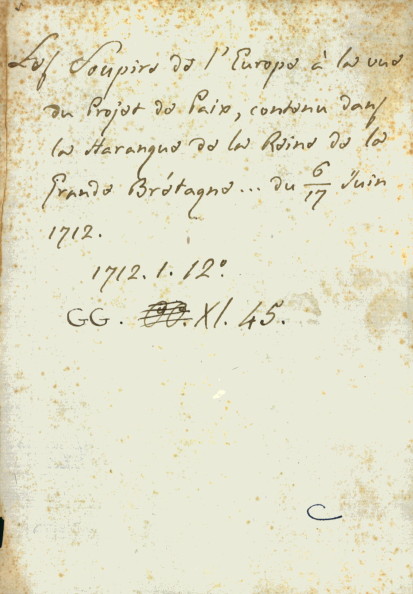 Les Soupirs de l'Europe à la vue
du Projet de Paix, contenu dans
la Harangue de la Reine de la
Grande Brétagne... du 6/17 Juin
1712.
1712. 1. 12°
GG. XI. 45.
C